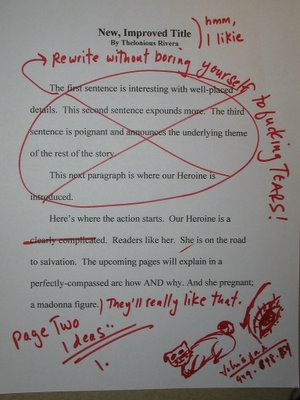 New, Improved Title
By Thelonious Rivera
hmm,
I likie
Rewrite without boring yourself to fucking TEARS!
The first sentence is interesting with well-placed
details. This second sentence expounds more. The third
sentence is poignant and announces the underlying theme
of the rest of the story.
This next paragraph is where our Heroine is
introduced.
Here's where the action starts. Our Heroine is a
clearly complicated. Readers like her. She is on the road
to salvation. The upcoming pages will explain in a
perfectly-compassed arc how AND why. And she pregnant;
a madonna figure.
They'll really like that.
page Two
Ideas:
1.